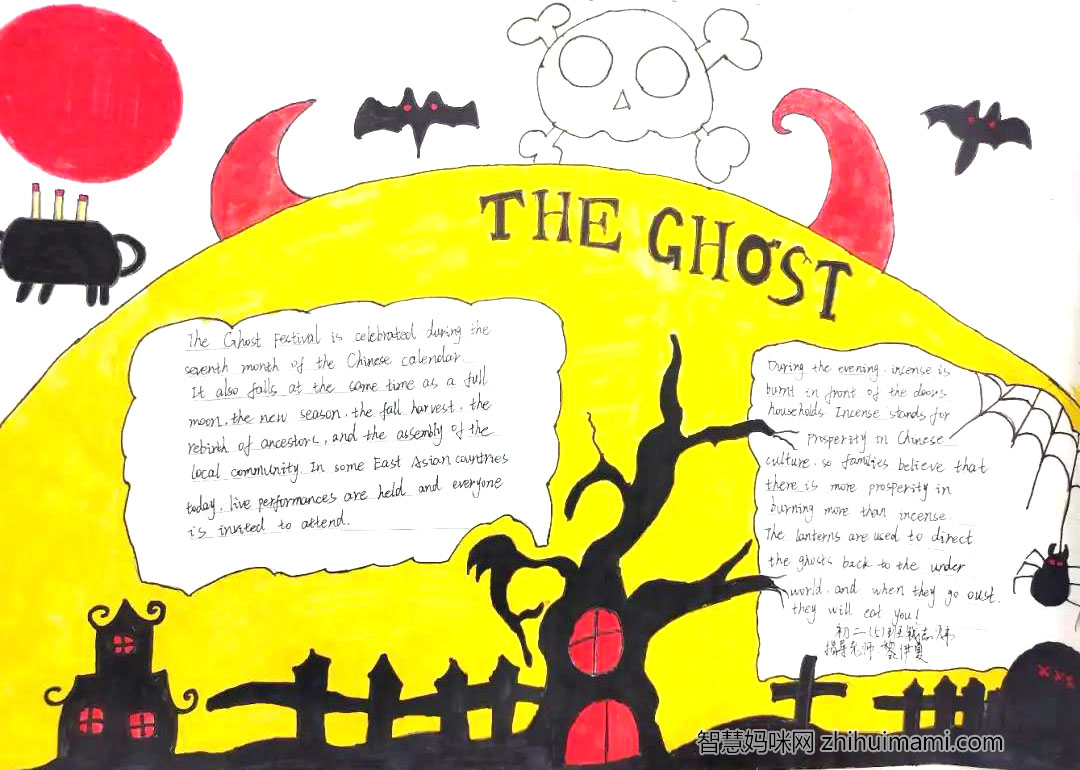 THE GHOST
The Ghost Festival is celebrated during the
seventh month of the Chinese calendar.
It also falls at the same time as a full
moon, the new season, the fall harvest, the
rebirth of ancestors, and the assembly of the
local community. In some East Asian countries
today, live performances are held and everyone
is invited to attend.
During the evening, incense is
burnt in front of the doors
households. Incense stands for
prosperity in Chinese
culture, so families believe that
there is more prosperity in
burning more than incense.
The lanterns are used to direct
the ghosts back to the under
world, and when they go oust,
they will eat you!
初二(5)班
指导老师 黎伊夏
智慧妈咪网 zhihuimami.com